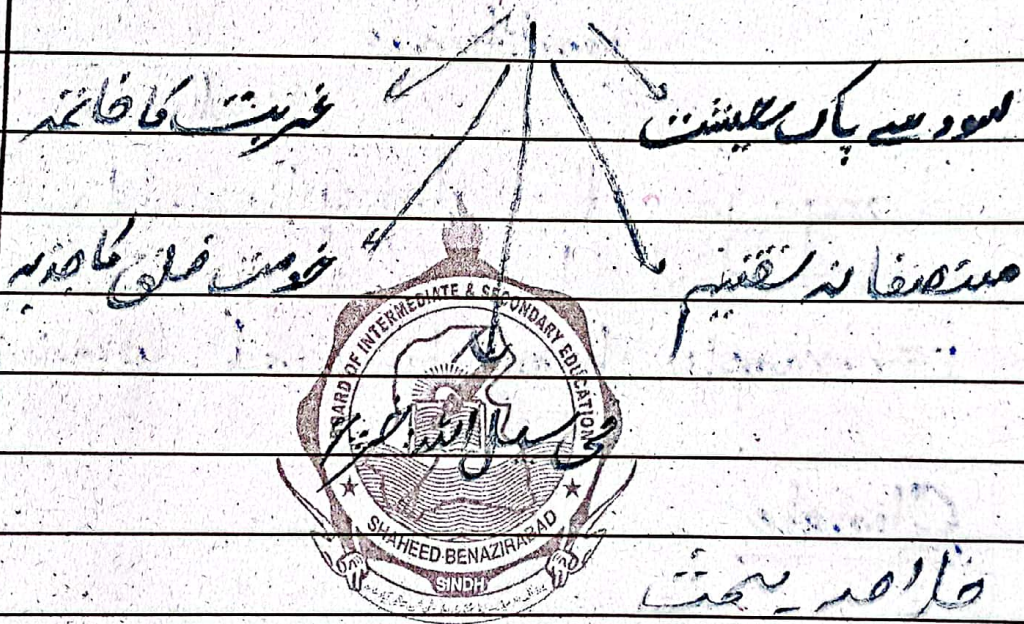 سود سے پاک معیشت غربت کا خاتمہ
منصفانہ تقسیم خدمت خلق کا جذبہ
BOARD OF INTERMEDIATE & SECONDARY EDUCATION
فی سبیل اللہ خرچ
SHAHEED BENAZIRABAD
SINDH
خلاصہ بحث